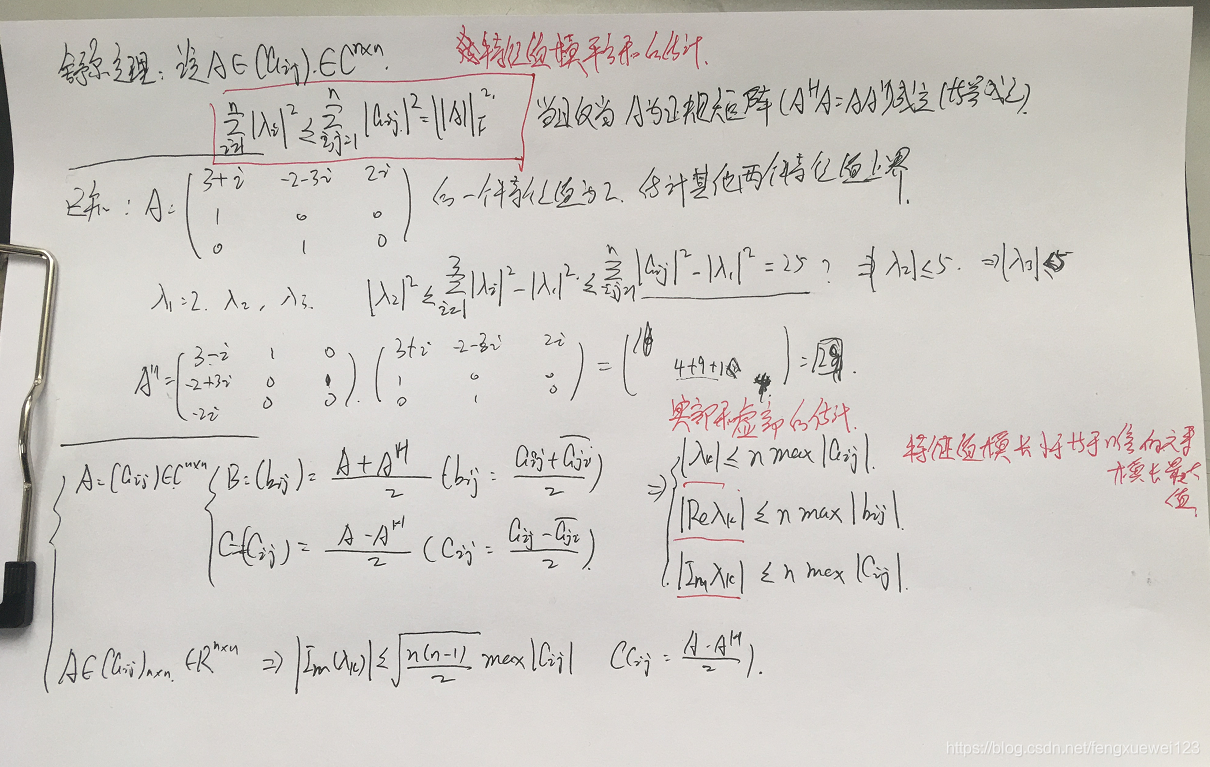 舒尔定理: 设 A∈(aᵢⱼ).∈Cⁿˣⁿ. 特征值模平方和的估计.
∑ᵢ₌₁ⁿ|λᵢ|² ≤ ∑ᵢ,ⱼ₌₁ⁿ|aᵢⱼ|² = ||A||_F². 当且仅当 A为正规矩阵 (AᴴA=AAᴴ)成立 (等号成立)
已知: A= ( 3+i -2-3i 2i ; 1 0 0 ; 0 1 0 ) 的一个特征值为2. 估计其他两个特征值上界.
λ₁=2. λ₂, λ₃. |λ₂|² ≤ ∑ᵢ₌₁³|λᵢ|² - |λ₁|² ≤ ∑ᵢ,ⱼ₌₁ⁿ|aᵢⱼ|² - |λ₁|² = 25 ? ⇒|λ₂|≤5. ⇒|λ₃|≤5
Aᴴ= ( 3-i 1 0 ; -2+3i 0 1 ; -2i 0 0 ). ( 3+i -2-3i 2i ; 1 0 0 ; 0 1 0 ) = ( 4+9+1 ) = 29.
实部和虚部的估计.
A=(aᵢⱼ)∈Cⁿˣⁿ B=(bᵢⱼ)= (A+Aᴴ)/2 (bᵢⱼ = (aᵢⱼ+a̅ⱼᵢ)/2) ⇒ |λₖ| ≤ n max |aᵢⱼ|. 特征值模长小于等于n倍的元素模长最大值.
|Reλₖ| ≤ n max |bᵢⱼ|.
C=(Cᵢⱼ)= (A-Aᴴ)/2 (Cᵢⱼ = (aᵢⱼ-a̅ⱼᵢ)/2) |Imλₖ| ≤ n max |Cᵢⱼ|.
A∈(aᵢⱼ)ₙₓₙ. ∈Rⁿˣⁿ ⇒ |Im(λₖ)| ≤ √(n(n-1)/2) max |Cᵢⱼ| (Cᵢⱼ = (A-Aᴴ)/2).
https://blog.csdn.net/fengxuewei123